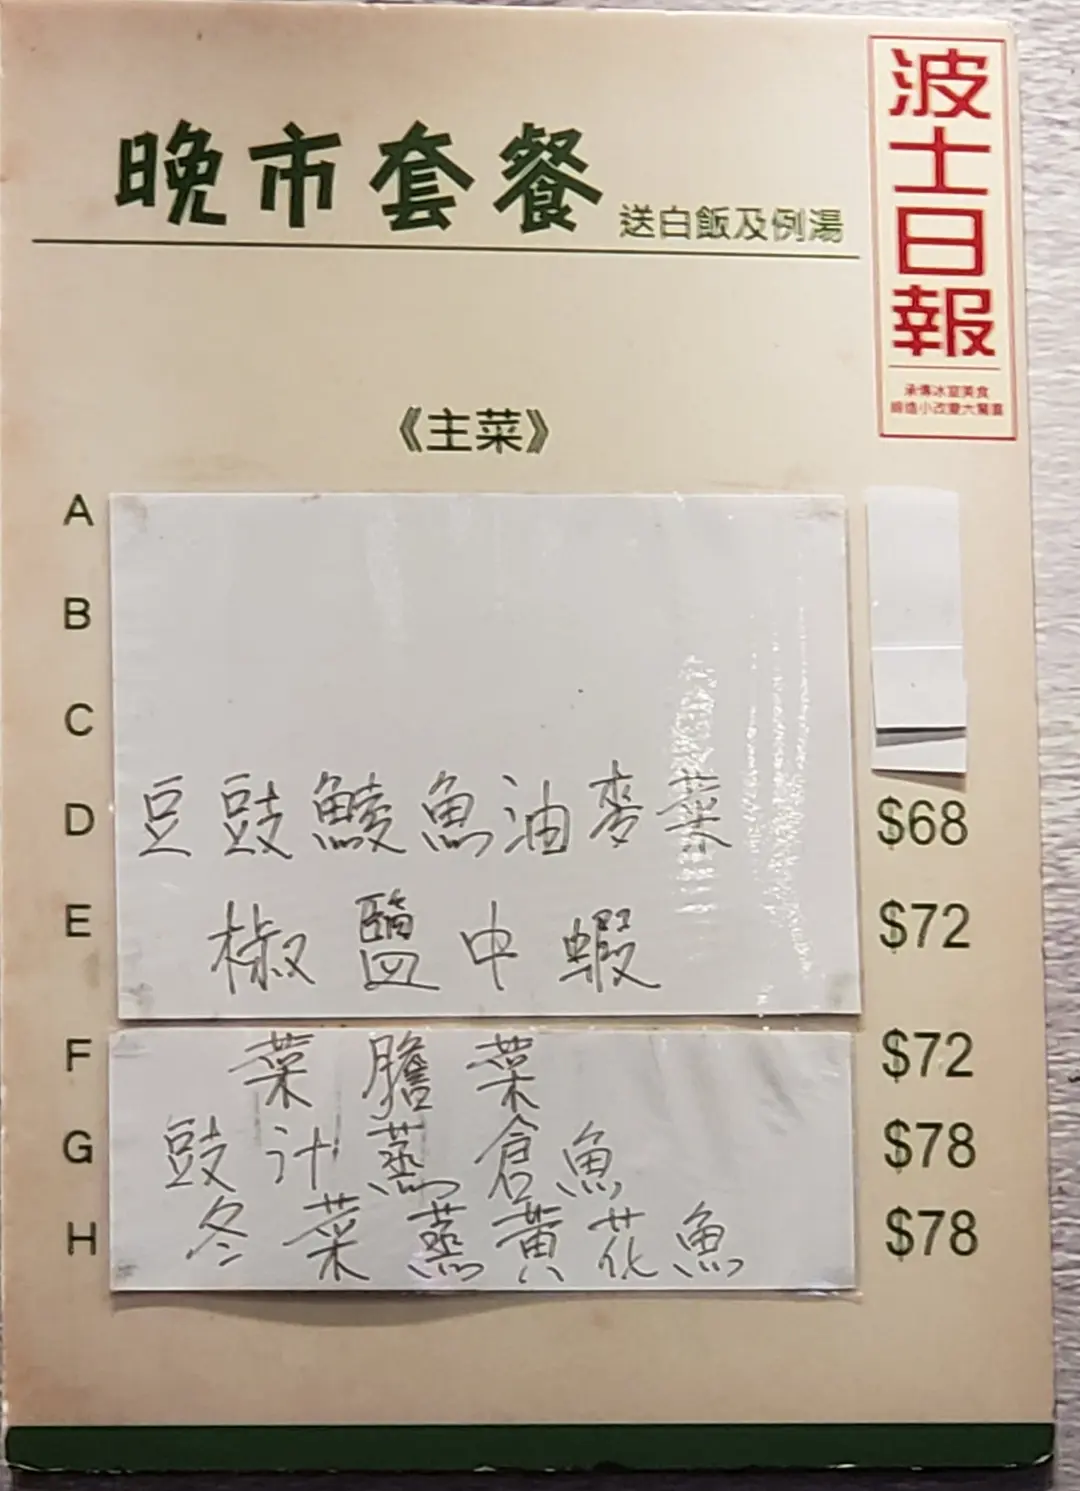 晚市套餐 送白飯及例湯
波士日報
承傳冰室美食
《主菜》
A
B
C
D 豆豉鯪魚油麥菜 $68
E 椒鹽中蝦 $72
F 菜膽菜 $72
G 豉汁蒸倉魚 $78
H 冬菜蒸黃花魚 $78